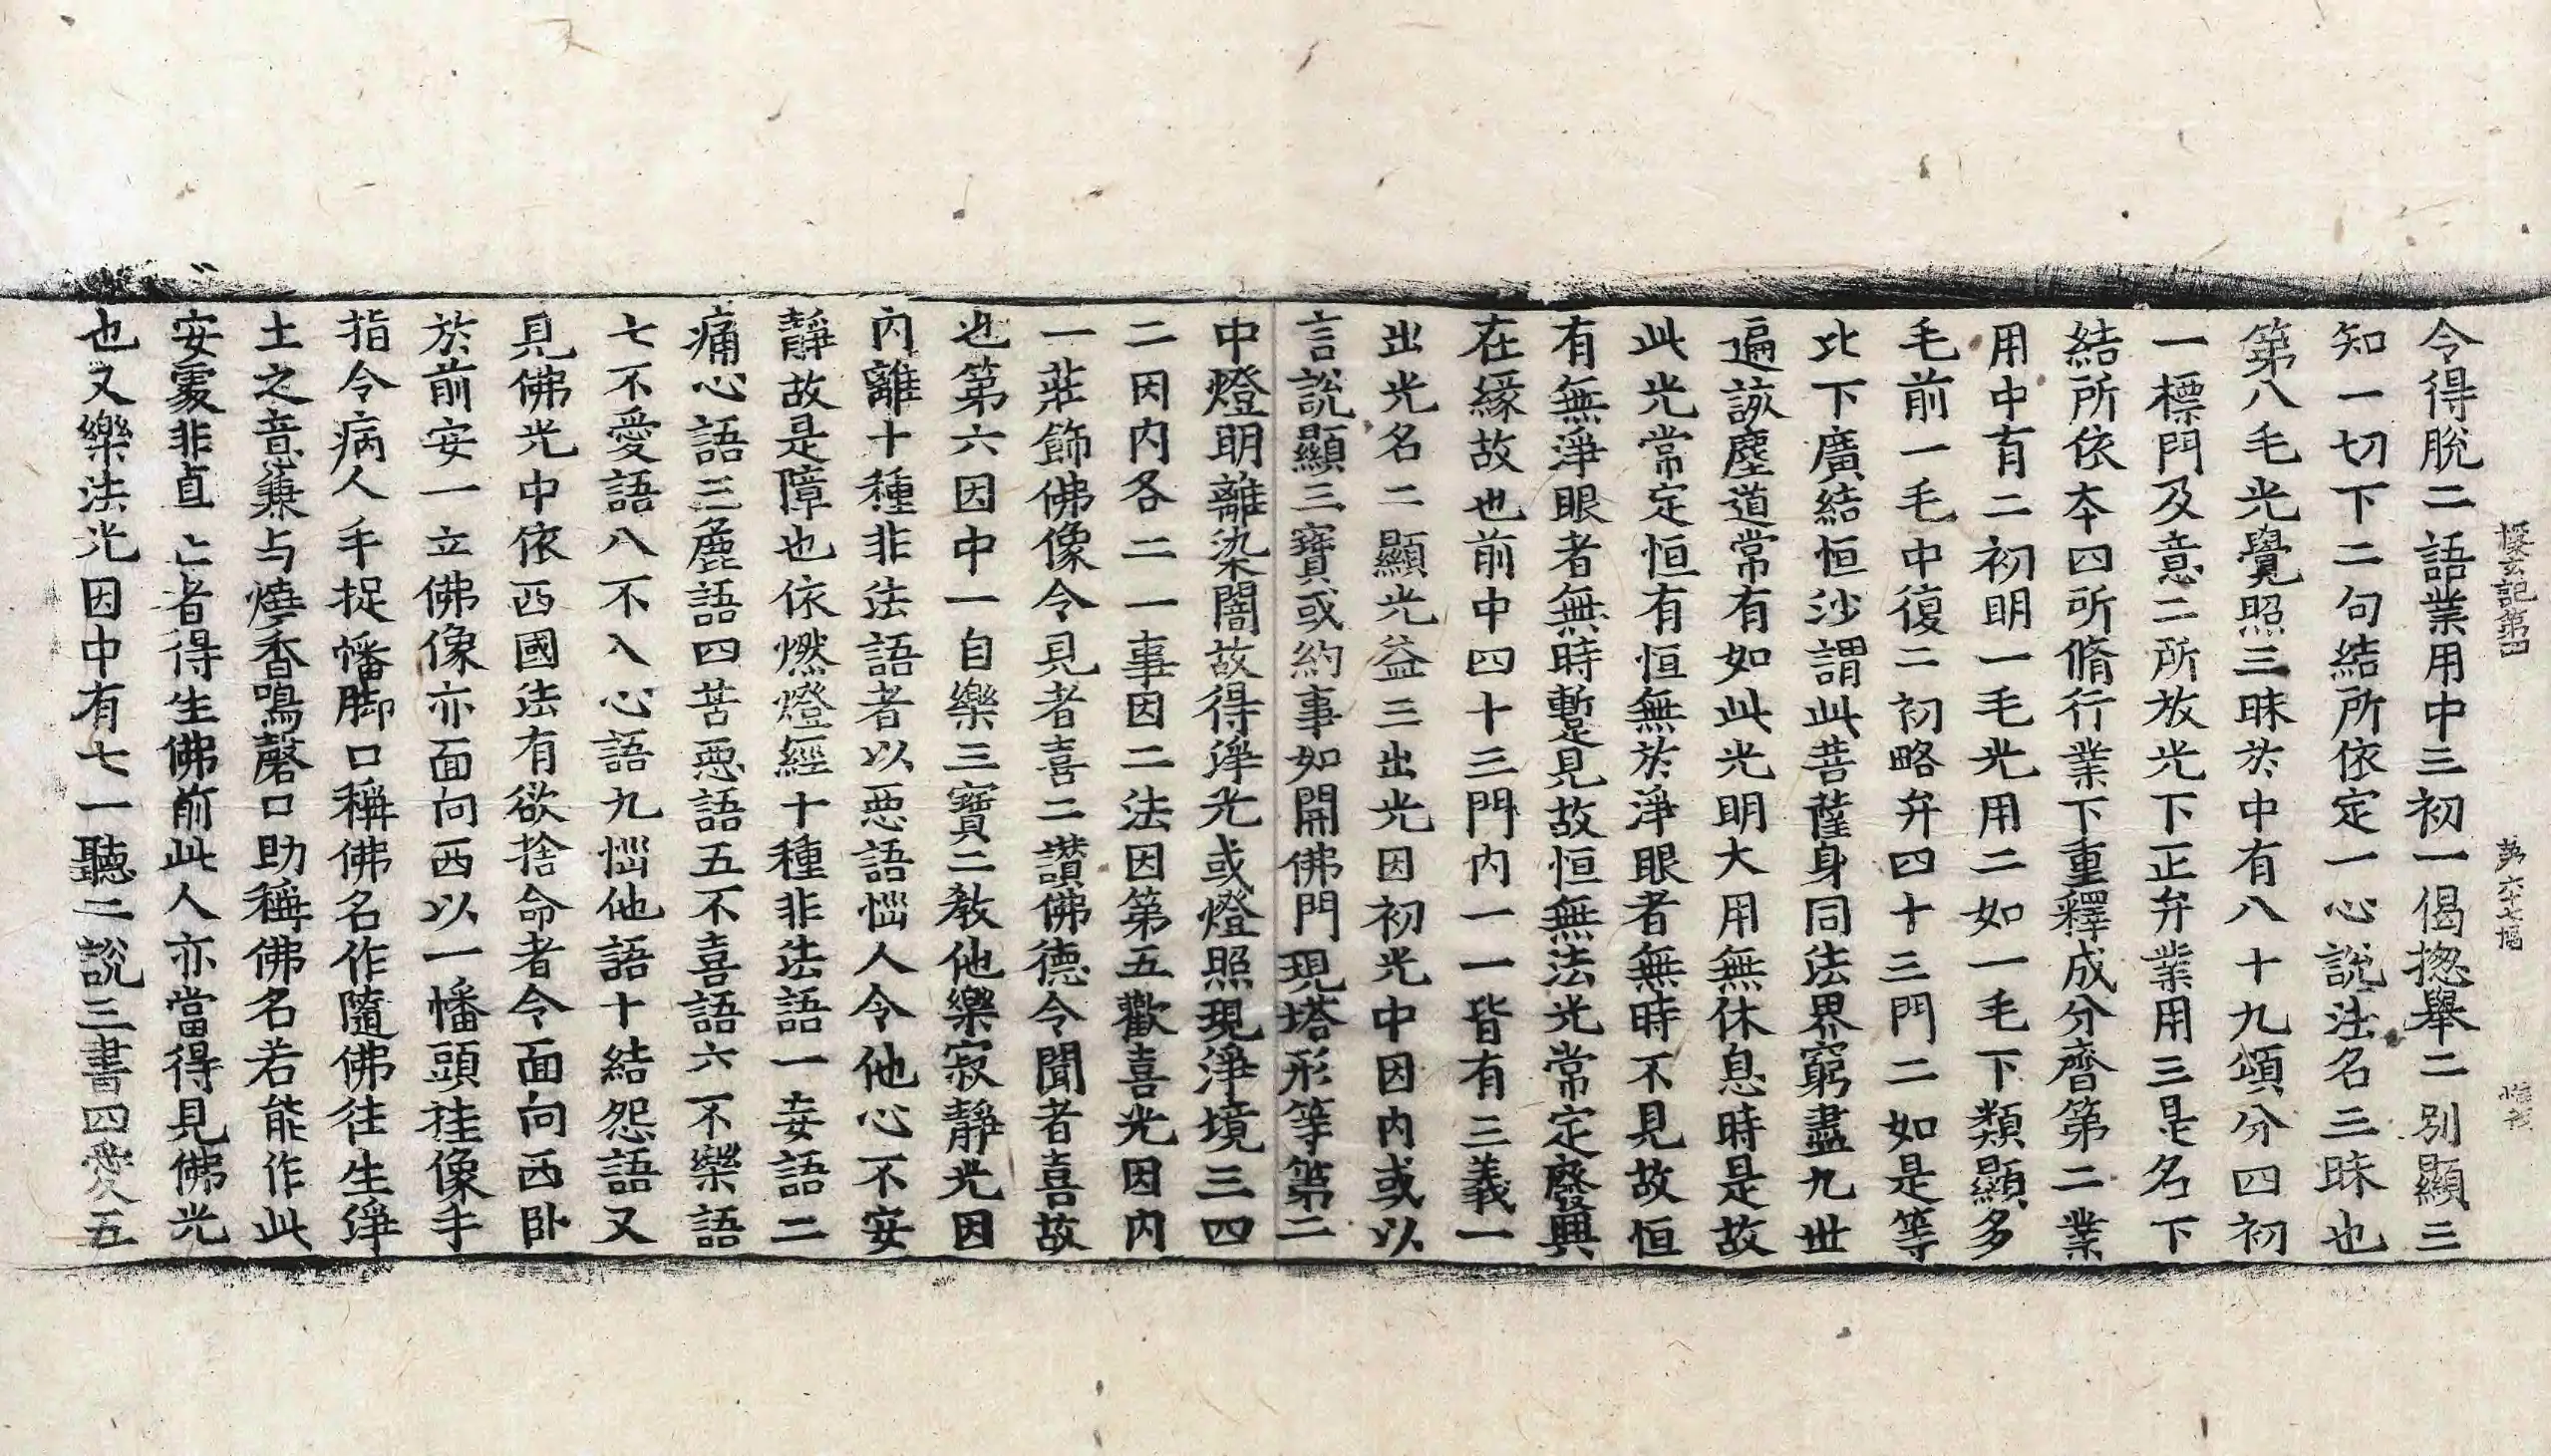 探玄記第四 第六十七幅
令得脫二語業用中三初一偈揔舉二別顯三
知一切下二句結所依定一心說法名三昧也
第八毛光覺照三昧於中有八十九頌分四初
一標門及意二所放光下正弁業用三是名下
結所依夲四所脩行業下重釋成分齊第二業
用中有二初明一毛光用二如一毛下類顯多
毛前一毛中復二初略弁四十三門二如是等
比下廣結恒沙謂此菩薩身同法界窮盡九世
遍該塵道常有如此光明大用無休息時是故
此光常定恒有恒無於淨眼者無時不見故恒
有無淨眼者無時暫見故恒無法光常定廢興
在緣故也前中四十三門內一一皆有三義一
出光名二顯光益三出光因初光中因內或以
言說顯三寶或約事如開佛門現塔形等第二
中燈明離染闇故得淨光或燈照現淨境三四
二因內各二一事因二法因第五歡喜光因內
一莊飾佛像令見者喜二讃佛德令聞者喜故
也第六因中一自樂三寶二教他樂寂靜光因
內離十種非法語者以惡語惱人令他心不安
靜故是障也依燃燈經十種非法語一妄語二
痛心語三麁語四苦惡語五不喜語六不樂語
七不愛語八不入心語九惱他語十結怨語又
見佛光中依西國法有欲捨命者令面向西臥
於前安一立佛像亦面向西以一幡頭挂像手
指令病人手捉幡脚口稱佛名作隨佛往生淨
土之意兼与燒香鳴磬口助稱佛名若能作此
安處非直亡者得生佛前此人亦當得見佛光
也又樂法光因中有七一聽二說三書四愛五